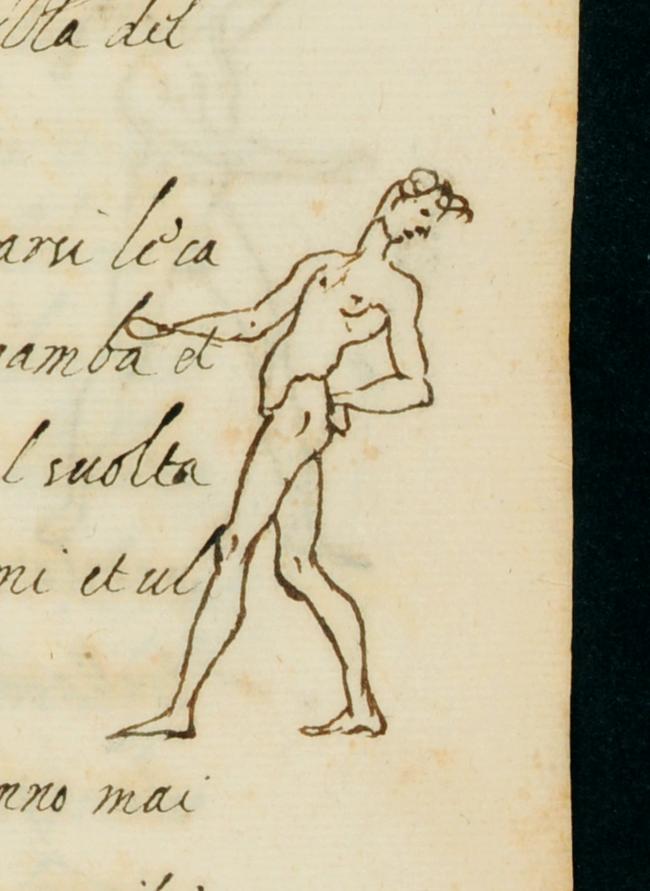 del
le ca
gamba et
l suolta
ni et ul
nno mai